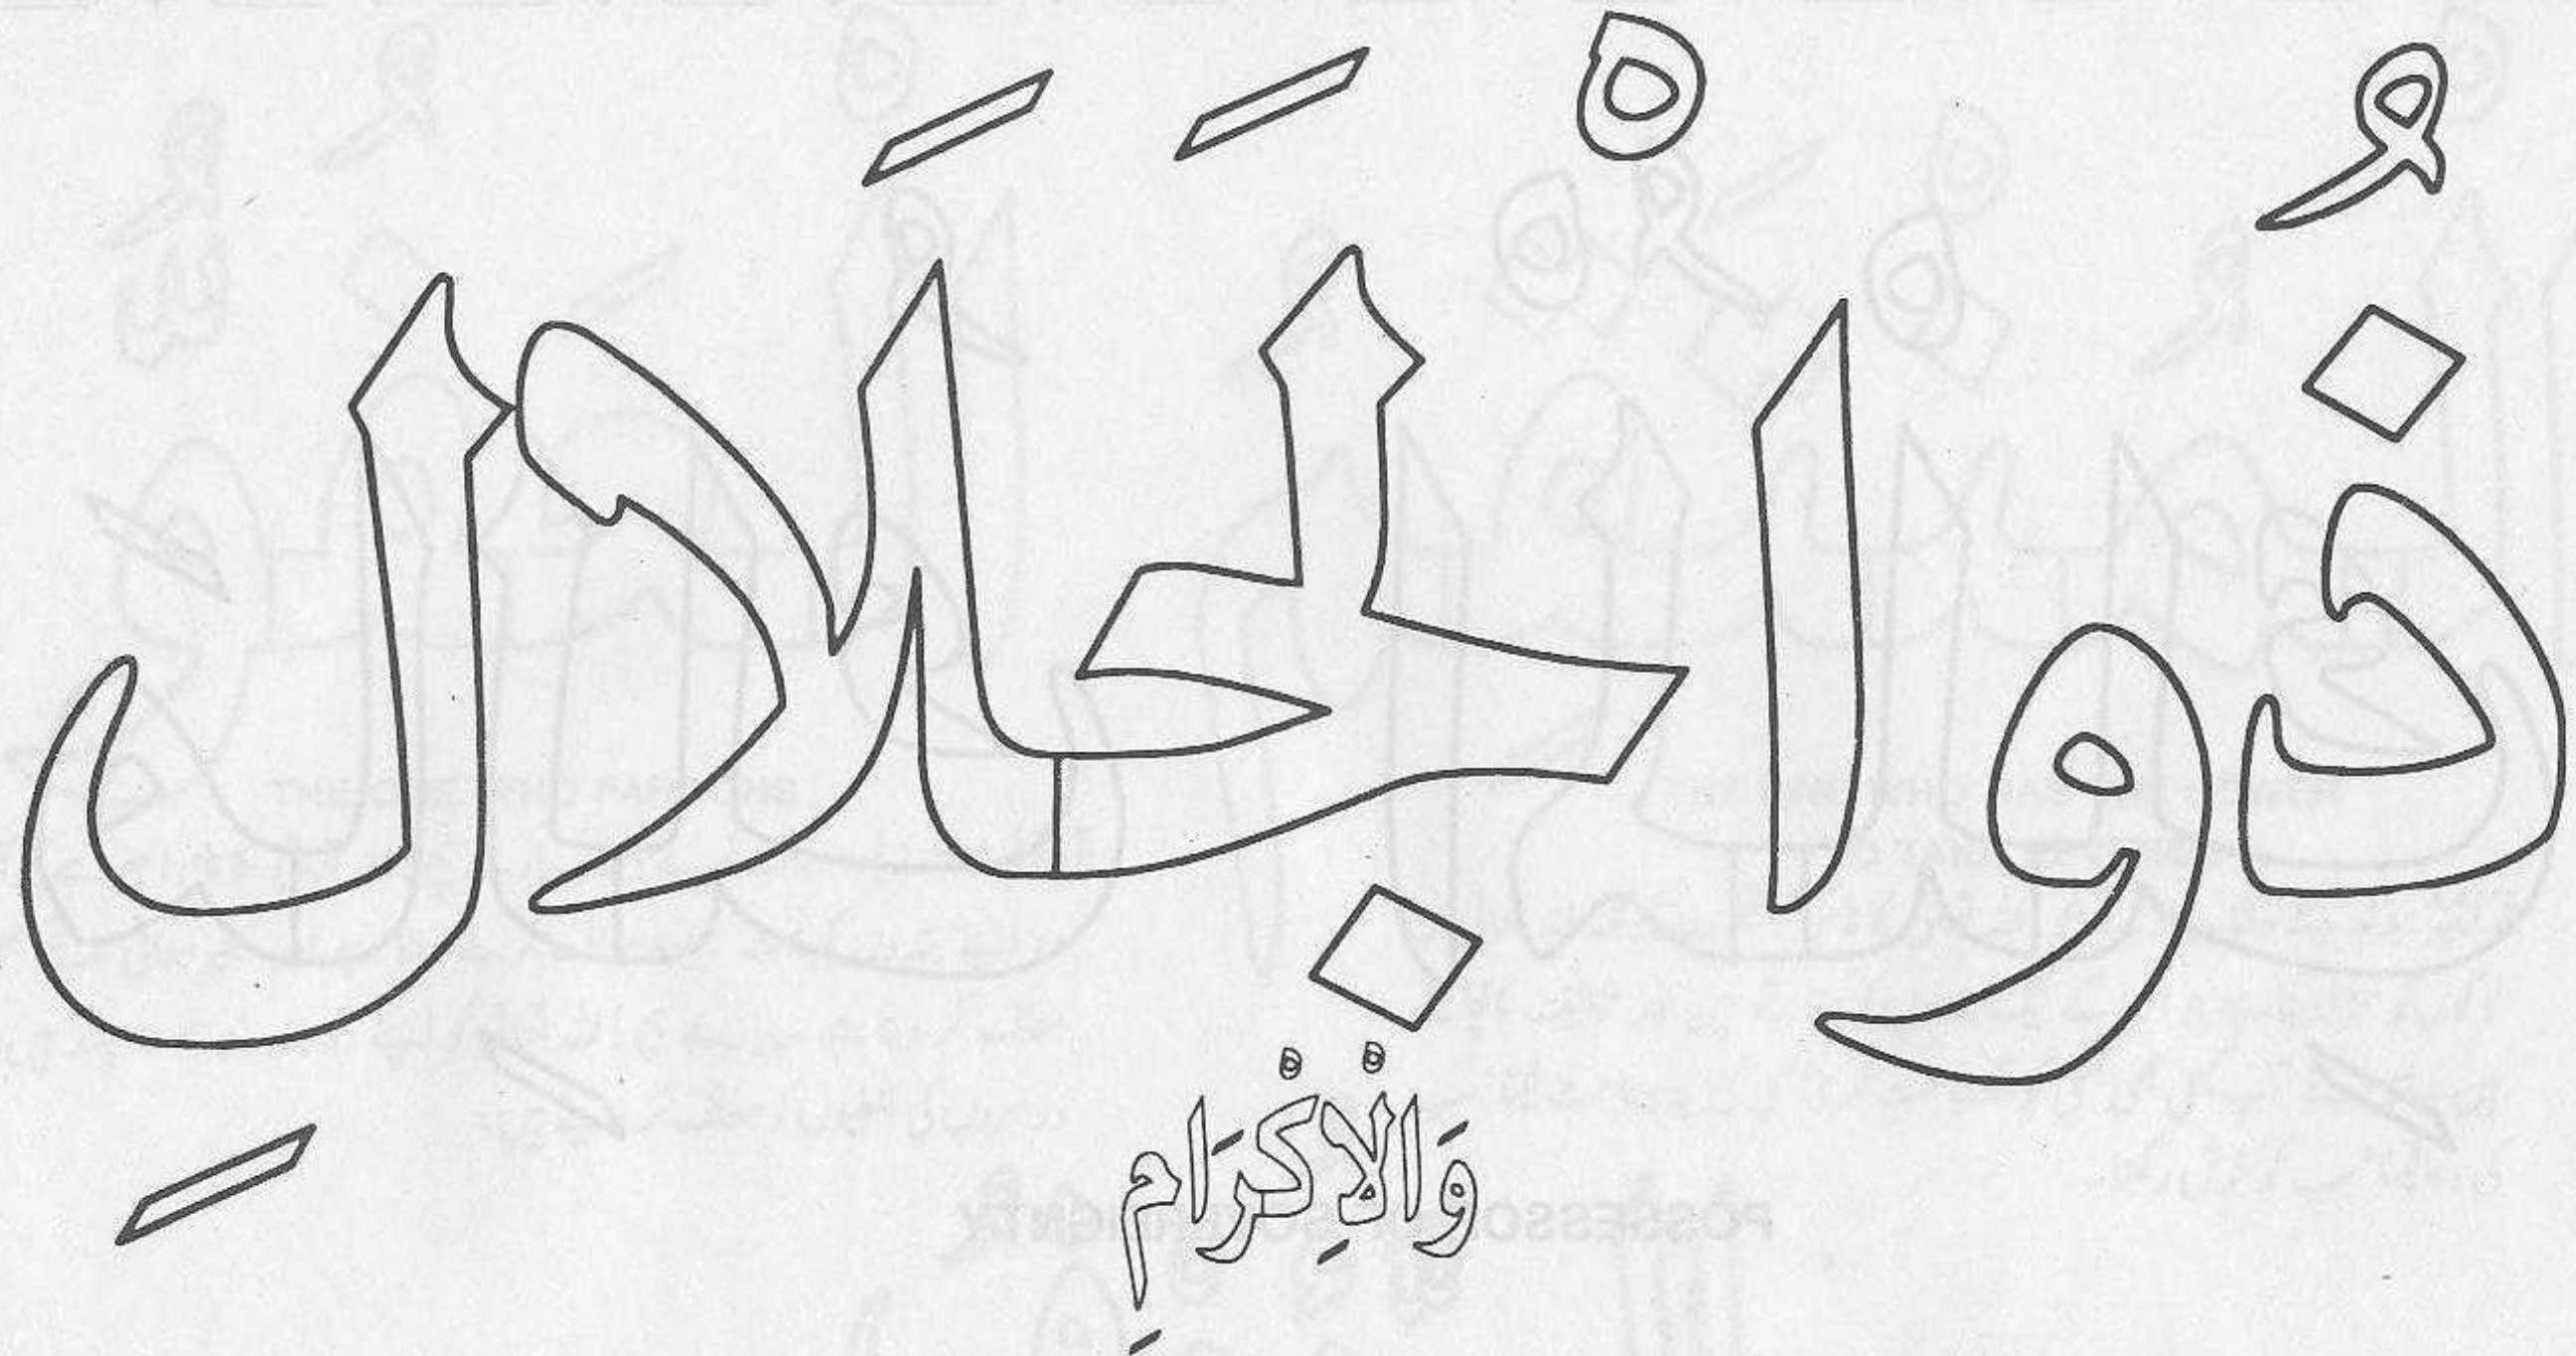 ذُوا لْجَلَالِ
وَالْاِكْرَامِ